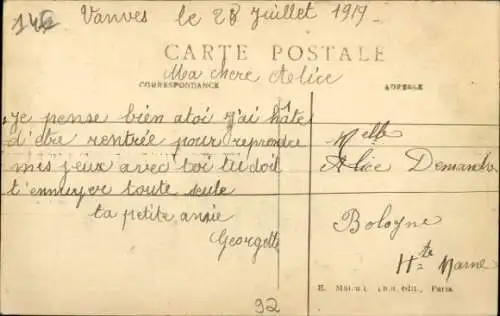 14C
Vanves le 28 Juillet 1919
CARTE POSTALE
Ma chere Aelice
CORRESPONDANCE
ADRESSE
Je pense bien atoi j'ai hâte
d'être rentrée pour reprendre
mes jeux avec toi tu doit
t'ennuyer toute seule
ta petite amie
Georgette
Melle
Alice Demandre
Bologne
Hte Marne
édit., Paris
92